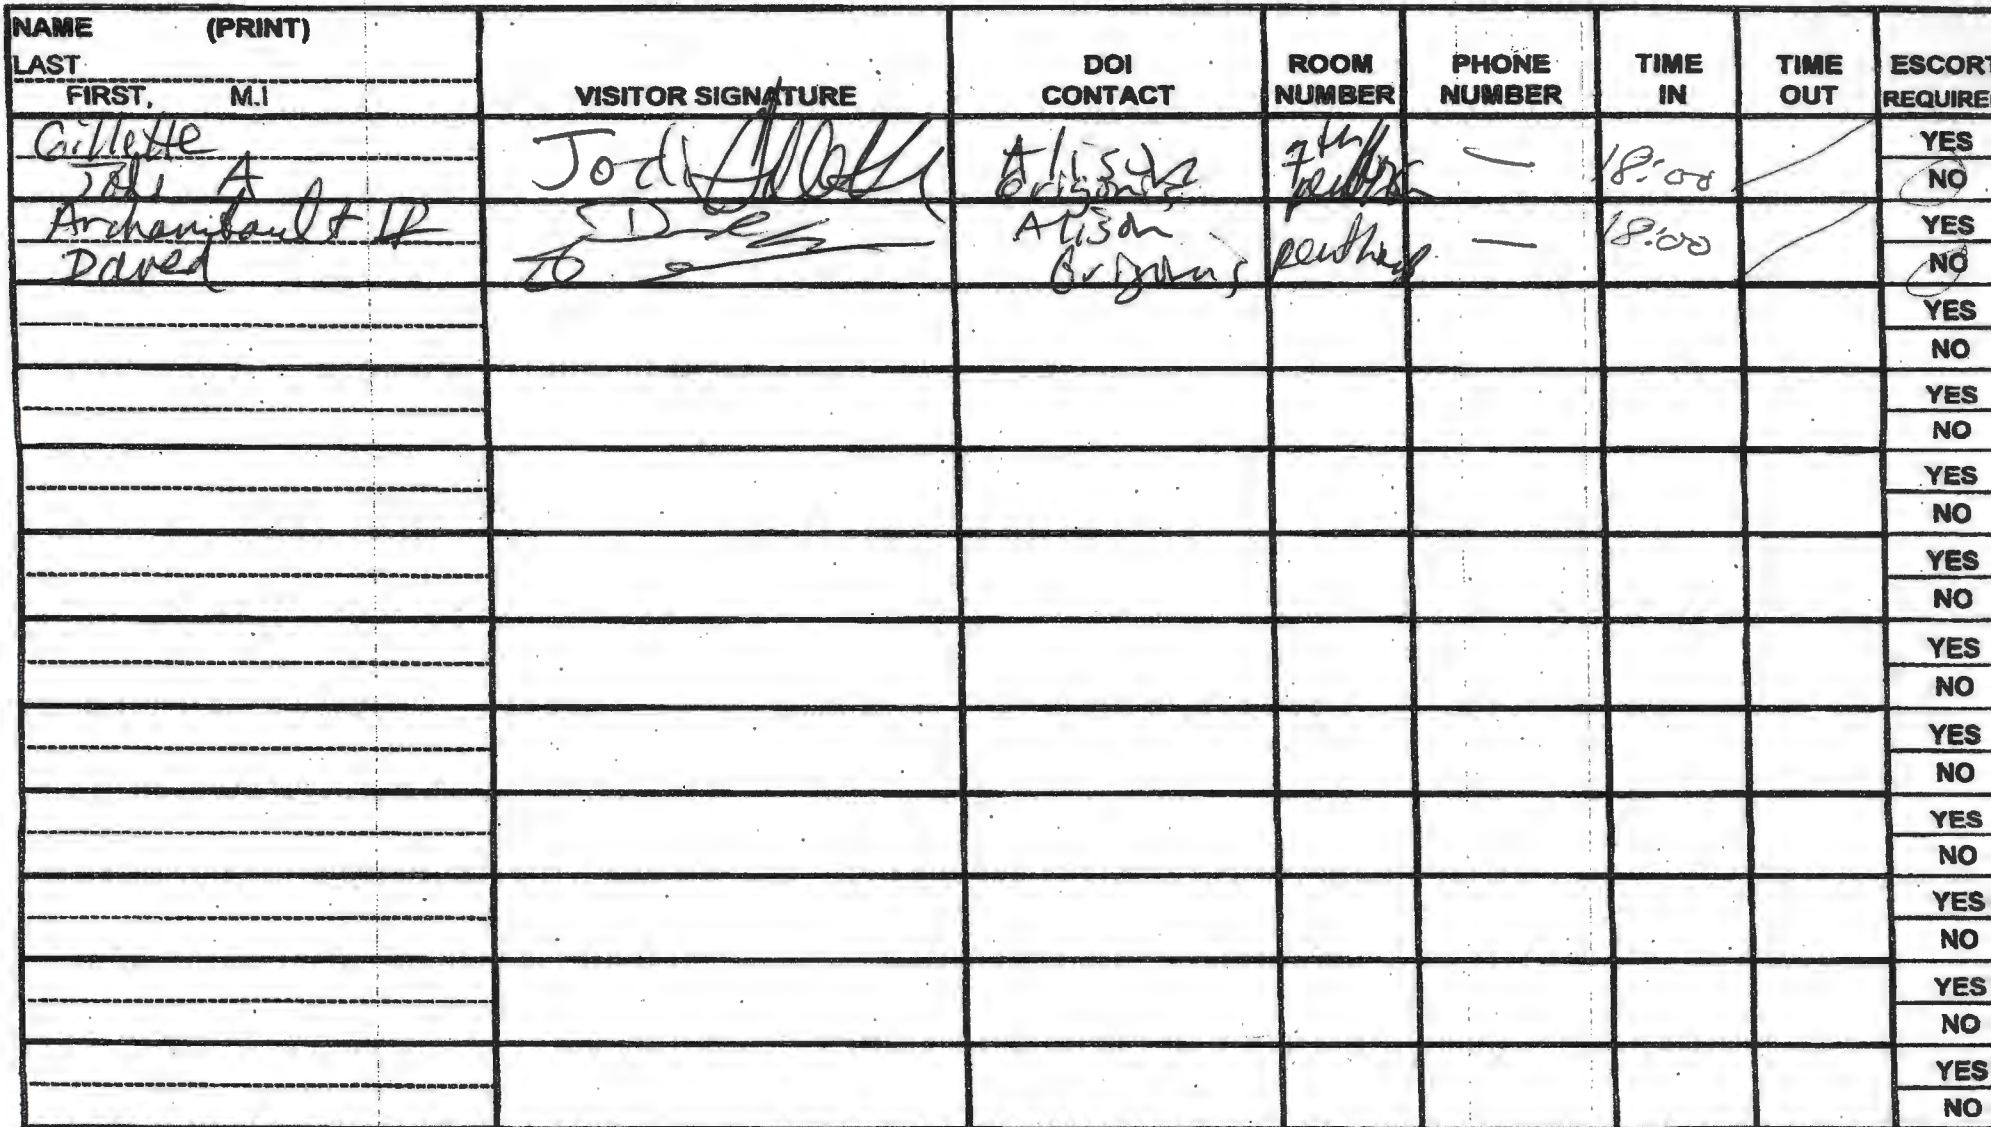 NAME (PRINT)
LAST
FIRST, M.I
VISITOR SIGNATURE
DOI
CONTACT
ROOM
NUMBER
PHONE
NUMBER
TIME
IN
TIME
OUT
ESCORT
REQUIRE
Gillette
Jodi A
Jodi Gillette
Alison
Grigonis
7th
— 18:00
YES
NO
Archambault II
David
Alison
Grigonis
— 18:00
YES
NO
YES
NO
YES
NO
YES
NO
YES
NO
YES
NO
YES
NO
YES
NO
YES
NO
YES
NO
YES
NO